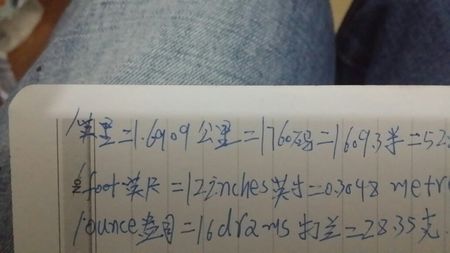 1英里=1.6909公里=1760码=1609.3米=52
foot英尺=12inches英寸=0.3048 metre
1ounce盎司=16drams打兰=28.35克